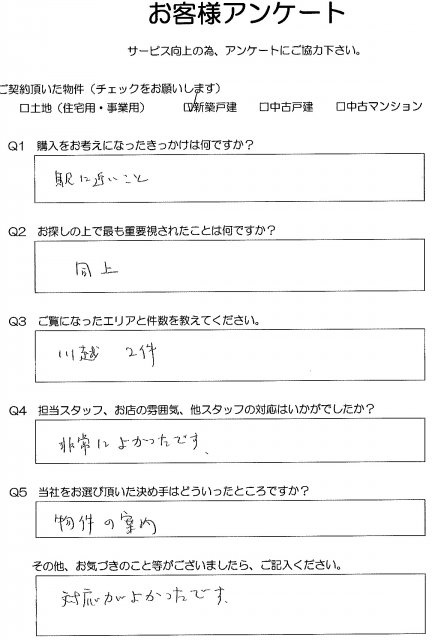 お客様アンケート
サービス向上の為、アンケートにご協力下さい。
ご契約頂いた物件（チェックをお願いします）
□土地（住宅用・事業用） ☑新築戸建 □中古戸建 □中古マンション
Q1 購入をお考えになったきっかけは何ですか？
駅に近いこと
Q2 お探しの上で最も重要視されたことは何ですか？
同上
Q3 ご覧になったエリアと件数を教えてください。
川越 2件
Q4 担当スタッフ、お店の雰囲気、他スタッフの対応はいかがでしたか？
非常によかったです、
Q5 当社をお選び頂いた決め手はどういったところですか？
物件の案内
その他、お気づきのこと等がございましたら、ご記入ください。
対応がよかったです、